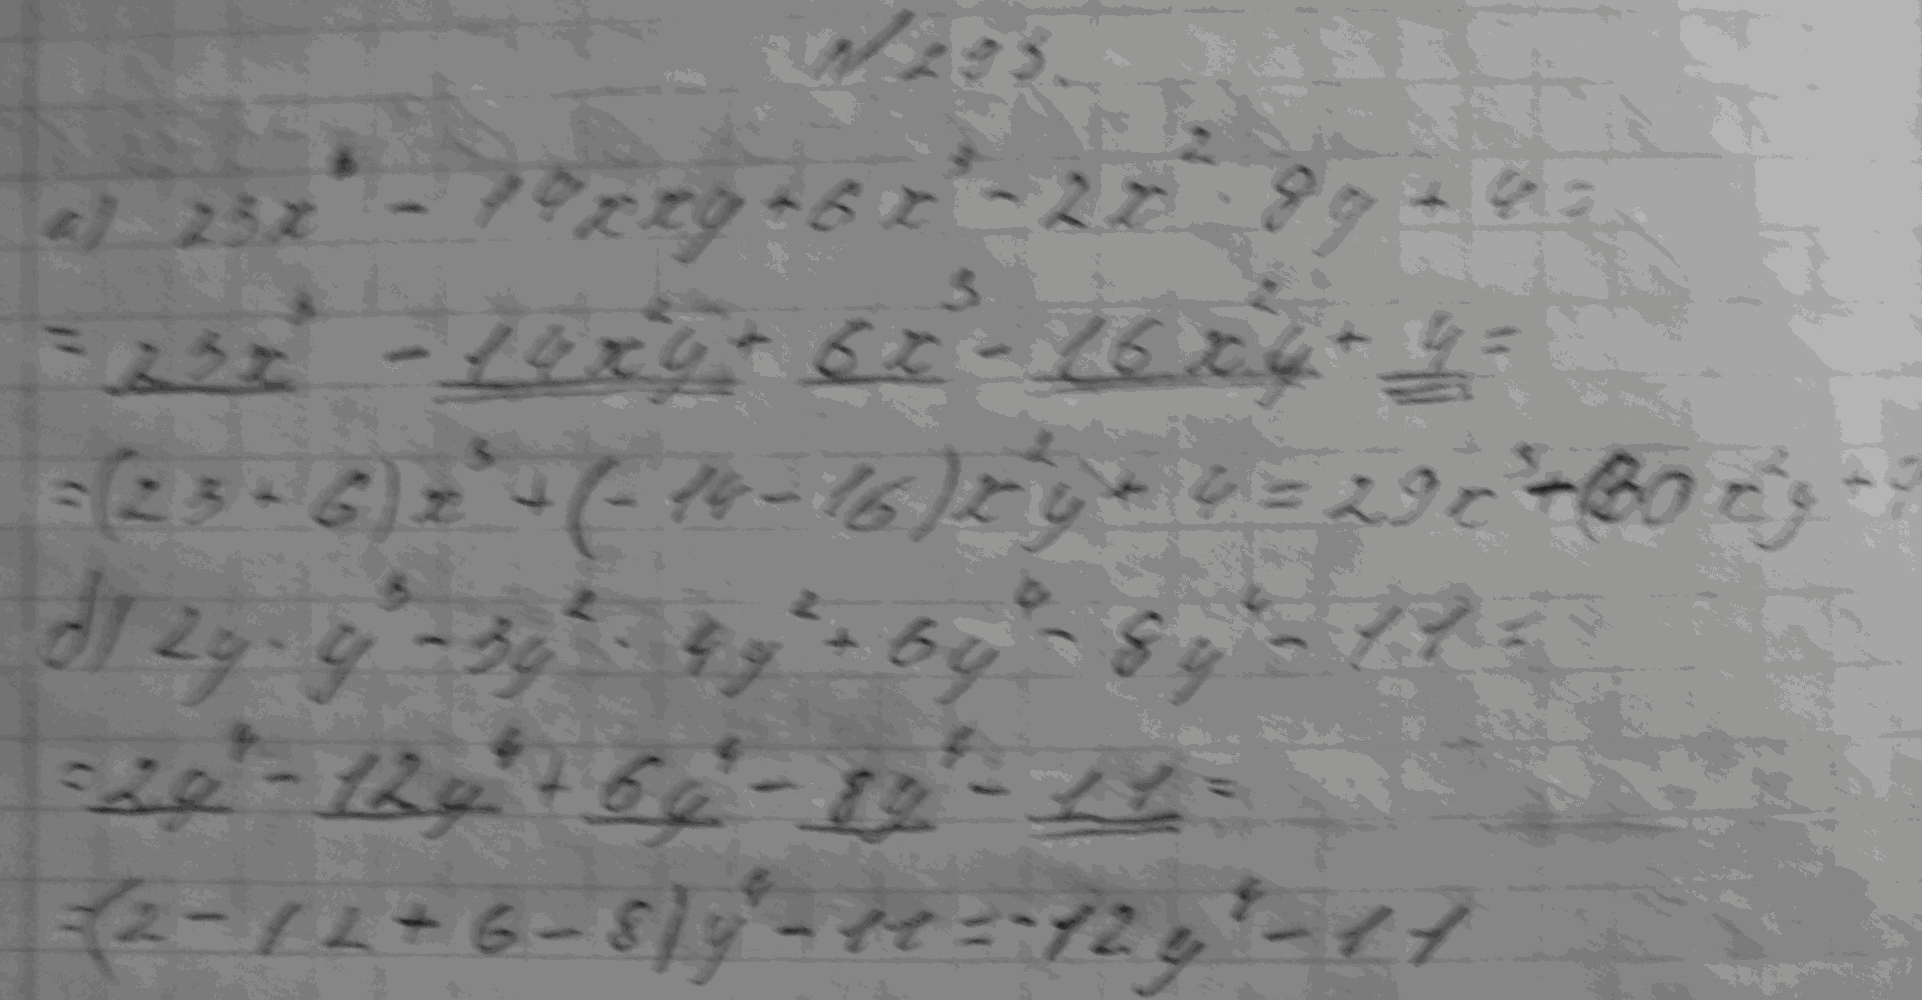 N 293.
а) 23x³ - 14xxy + 6x³ - 2x² · 8y + 4 =
= 23x³ - 14x²y + 6x³ - 16x²y + 4 =
= (23 + 6)x³ + (-14 - 16)x²y + 4 = 29x³ - 30x²y +
d) 2y · y³ - 3y² · 4y² + 6y⁴ - 8y⁴ - 11 =
= 2y⁴ - 12y⁴ + 6y⁴ - 8y⁴ - 11 =
= (2 - 12 + 6 - 8)y⁴ - 11 = -12y⁴ - 11